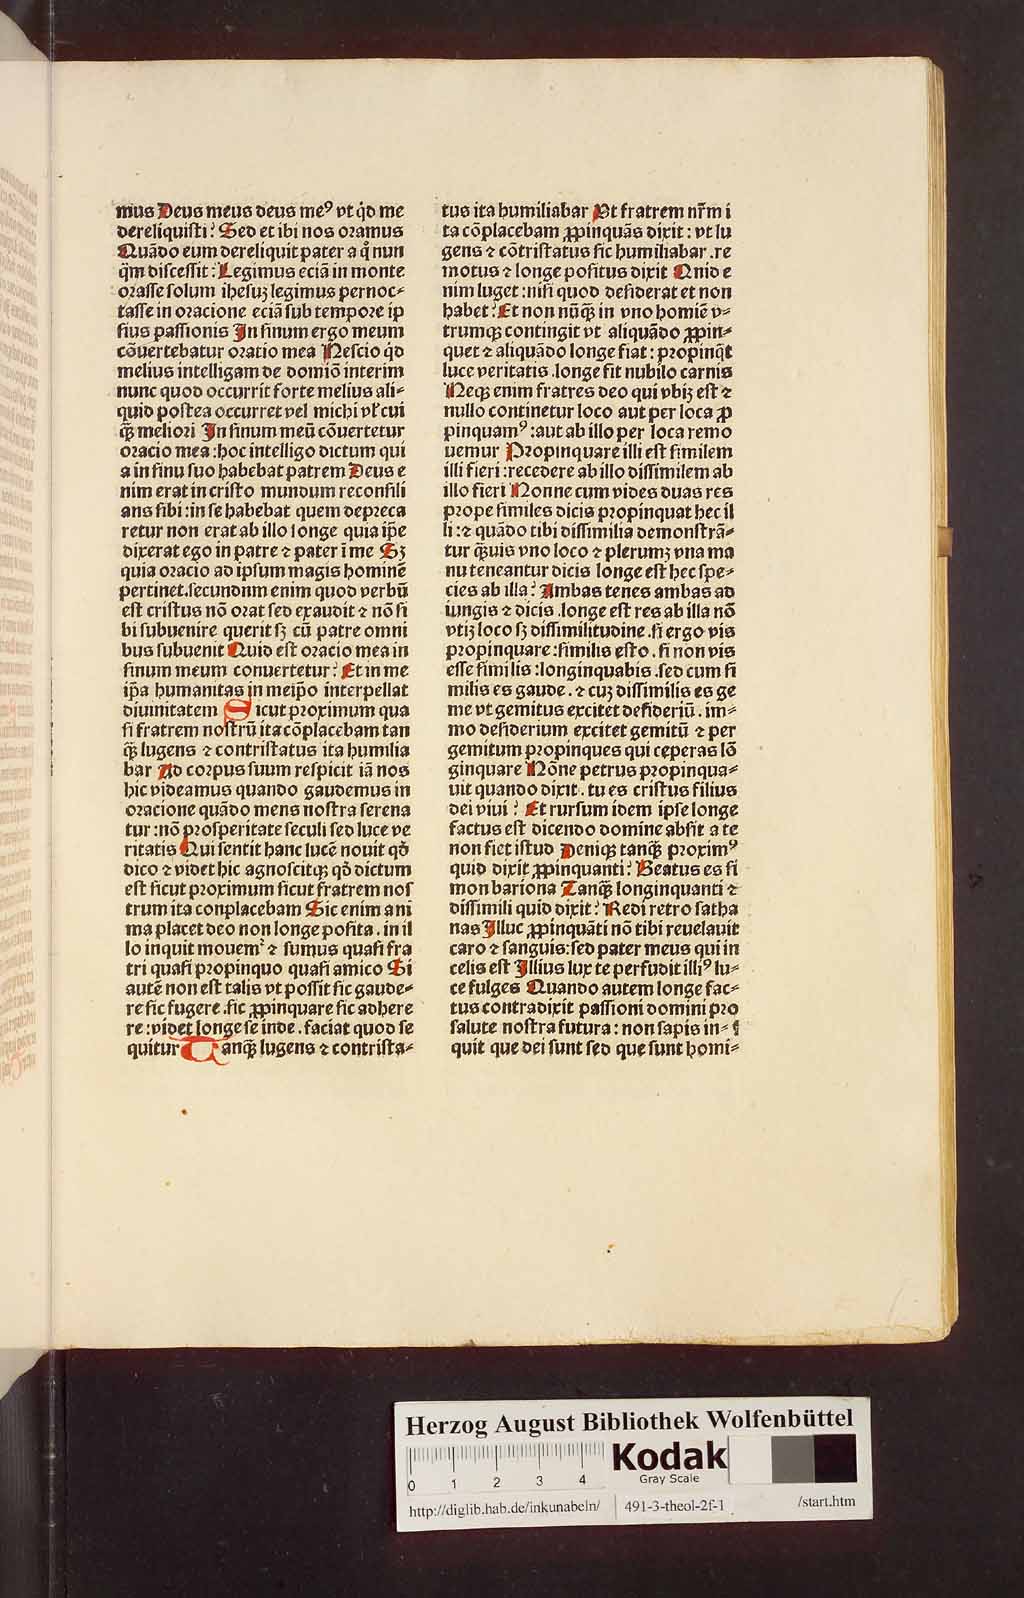 mus Deus meus deus meꝰ vt qͥd me
dereliquisti? Sed et ibi nos oramus
Quādo eum dereliquit pater a qͦ nun
qͣm discessit: Legimus eciā in monte
orasse solum ihesuꝫ legimus pernoc-
tasse in oracione eciā sub tempore ip
sius passionis In sinum ergo meum
cōuertebatur oratio mea Nescio qͥd
melius intelligam de domiō interim
nunc quod occurrit forte melius ali-
quid postea occurret vel michi vl̓ cui
qͣꝫ meliori In sinum meū cōuertetur
oracio mea :hoc intelligo dictum qui
a in sinu suo habebat patrem Deus e
nim erat in cristo mundum reconsili
ans sibi :in se habebat quem depreca
retur non erat ab illo longe quia ip̄e
dixerat ego in patre ⁊ pater ī me Sꝫ
quia oracio ad ipsum magis hominē
pertinet.secundum enim quod verbū
est cristus nō orat sed exaudit ⁊ nō si
bi subuenire querit sꝫ cū patre omni
bus subuenit Quid est oracio mea in
sinum meum conuertetur? Et in me
ip̄a humanitas in meip̄o interpellat
diuinitatem Sicut proximum qua
si fratrem nostrū ita cōplacebam tan
qͣꝫ lugens ⁊ contristatus ita humilia
bar Ad corpus suum respicit iā nos
hic videamus quando gaudemus in
oracione quādo mens nostra serena
tur :nō prosperitate seculi sed luce ve
ritatis Qui sentit hanc lucē nouit qd̄
dico ⁊ videt hic agnoscitqꝫ qd̄ dictum
est sicut proximum sicut fratrem nos
trum ita conplacebam Sic enim ani
ma placet deo non longe posita .in il
lo inquit mouemꝰ ⁊ sumus quasi fra
tri quasi propinquo quasi amico Si
autē non est talis vt possit sic gaude-
re sic fugere .sic ꝓpinquare sic adhere
re :videt longe se inde .faciat quod se
quitur Tanqͣꝫ lugens ⁊ contrista-
tus ita humiliabar Vt fratrem nr̄m i
ta cōplacebam ꝓpinquās dixit : vt lu
gens ⁊ cōtristatus sic humiliabar .re
motus ⁊ longe positus dixit Quid e
nim luget :nisi quod desiderat et non
habet? Et non nūqͣꝫ in vno homiē v-
trumqꝫ contingit vt aliquādo ꝓpin-
quet ⁊ aliquādo longe fiat : propinqͣt
luce veritatis .longe fit nubilo carnis
Neqꝫ enim fratres deo qui vbiqꝫ est ⁊
nullo continetur loco aut per loca ꝓ
pinquamꝰ :aut ab illo per loca remo
uemur Propinquare illi est similem
illi fieri :recedere ab illo dissimilem ab
illo fieri Nonne cum vides duas res
prope similes dicis propinquat hec il
li :⁊ quādo tibi dissimilia demonstrā-
tur qͣꝫuis vno loco ⁊ plerumꝫ vna ma
nu teneantur dicis longe est hec spe-
cies ab illa? Ambas tenes ambas ad
iungis ⁊ dicis .longe est res ab illa nō
vtiꝫ loco sꝫ dissimilitudine .si ergo vis
propinquare :similis esto .si non vis
esse similis :longinquabis .sed cum si
milis es gaude .⁊ cuꝫ dissimilis es ge
me vt gemitus excitet desideriū .im-
mo desiderium excitet gemitū ⁊ per
gemitum propinques qui ceperas lō
ginquare Nōne petrus propinqua-
uit quando dixit .tu es cristus filius
dei viui? Et rursum idem ipse longe
factus est dicendo domine absit a te
non fiet istud Deniqꝫ tanqͣꝫ proximꝰ
quid dixit ꝓpinquanti? Beatus es si
mon bariona Tanqͣꝫ longinquanti ⁊
dissimili quid dixit? Redi retro satha
nas Illuc ꝓpinquāti nō tibi reuelauit
caro ⁊ sanguis:sed pater meus qui in
celis est Illius lux te perfudit illiꝰ lu-
ce fulges Quando autem longe fac-
tus contradixit passioni domini pro
salute nostra futura : non sapis in-
quit que dei sunt sed que sunt homi-
Herzog August Bibliothek Wolfenbüttel
0 1 2 3 4
Kodak
Gray Scale
http://diglib.hab.de/inkunabeln/ 491-3-theol-2f-1 /start.htm